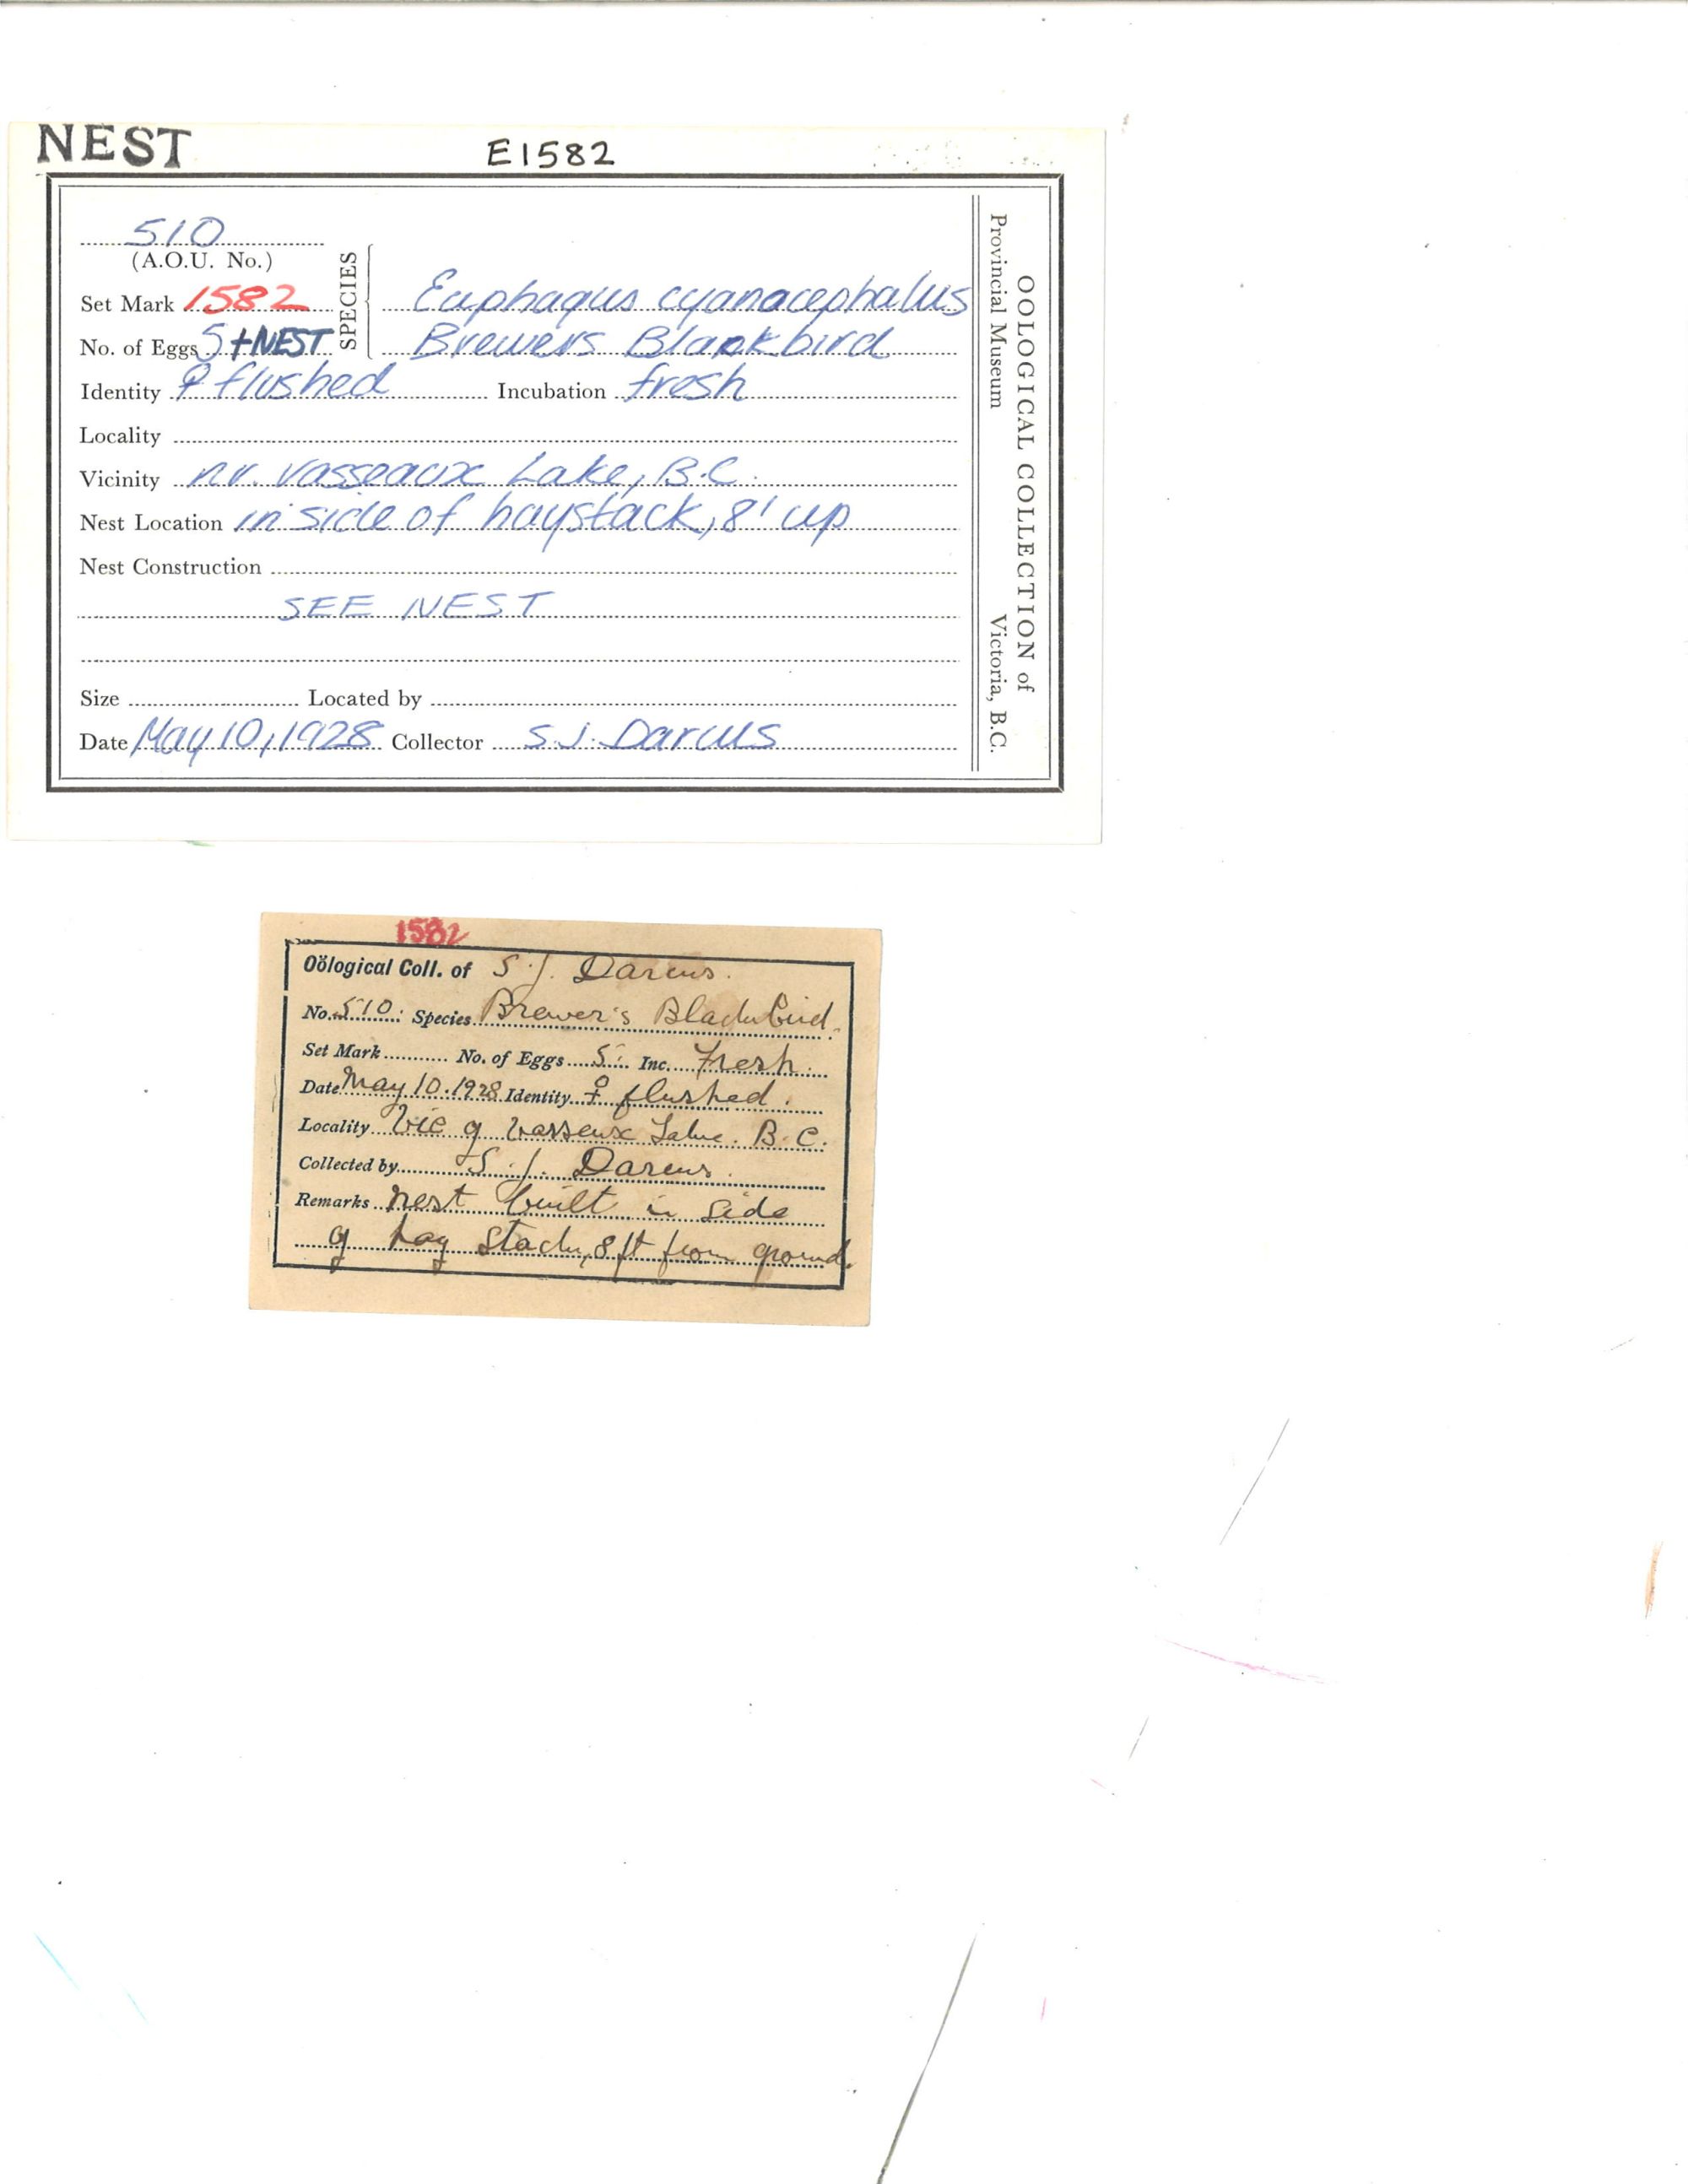 NEST
E1582
510
(A.O.U. No.)
SPECIES
Set Mark 1582
Euphagus cyanocephalus
No. of Eggs 5 + NEST
Brewers Blackbird
Identity ♀ flushed Incubation fresh
Locality
Vicinity nr. Vasseaux Lake, B.C.
Nest Location in side of haystack, 8' up
Nest Construction
SEE NEST
Size Located by
Date May 10, 1928 Collector S.J. Darcus
OOLOGICAL COLLECTION of
Provincial Museum Victoria, B.C.
1582
Oölogical Coll. of S. J. Darcus.
No. 510. Species Brewer's Blackbird.
Set Mark No. of Eggs 5. Inc. Fresh.
Date May 10. 1928 Identity ♀ flushed.
Locality Vic of Vasseux Lake. B.C.
Collected by S. J. Darcus.
Remarks nest built in side
of hay stack, 8 ft from ground.